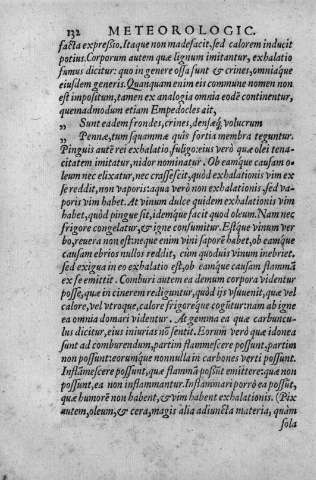 132 METEOROLOGIC.
facta expressio. Itaque non madefacit, sed calorem inducit
potius. Corporum autem quæ lignum imitantur, exhalatio
fumus dicitur: quo in genere ossa sunt & crines, omniaque
eiusdem generis. Quanquam enim eis commune nomen non
est impositum, tamen ex analogia omnia eodē continentur,
quemadmodum etiam Empedocles ait,
„ Sunt eadem frondes, crines, densæq́; volucrum
„ Pennæ, tum squammæ quis fortia membra teguntur.
Pinguis autē rei exhalatio, fuligo: eius verò quæ olei tena-
citatem imitatur, nidor nominatur. Ob eamque causam o-
leum nec elixatur, nec crassescit, quòd exhalationis vim ex
se reddit, non vaporis: aqua verò non exhalationis, sed va-
poris vim habet. At vinum dulce quidem exhalationis vim
habet, quòd pingue sit, idemque facit quod oleum. Nam nec
frigore congelatur, & igne consumitur. Estque vinum ver-
bo, reuera non est: neque enim vini saporē habet, ob eamque
causam ebrios nullos reddit, cum quoduis vinum inebriet.
sed exigua in eo exhalatio est, ob eamque causam flammā
ex se emittit. Comburi autem ea demum corpora videntur
posse, quæ in cinerem rediguntur, quòd ijs vsuuenit, quæ vel
calore, vel vtroque, calore frigoreque cogūtur: nam ab igne
ea omnia domari videntur. At gemma ea quæ carbuncu-
lus dicitur, eius iniurias nō sentit. Eorum verò quæ idonea
sunt ad comburendum, partim flammescere possunt, partim
non possunt: eorumque nonnulla in carbones verti possunt.
Inflāmescere possunt, quæ flammā possūt emittere: quæ non
possunt, ea non inflammantur. Inflammari porrò ea possūt,
quæ humorē non habent, & vim habent exhalationis. (Pix
autem, oleum, & cera, magis alia adiuncta materia, quàm
sola